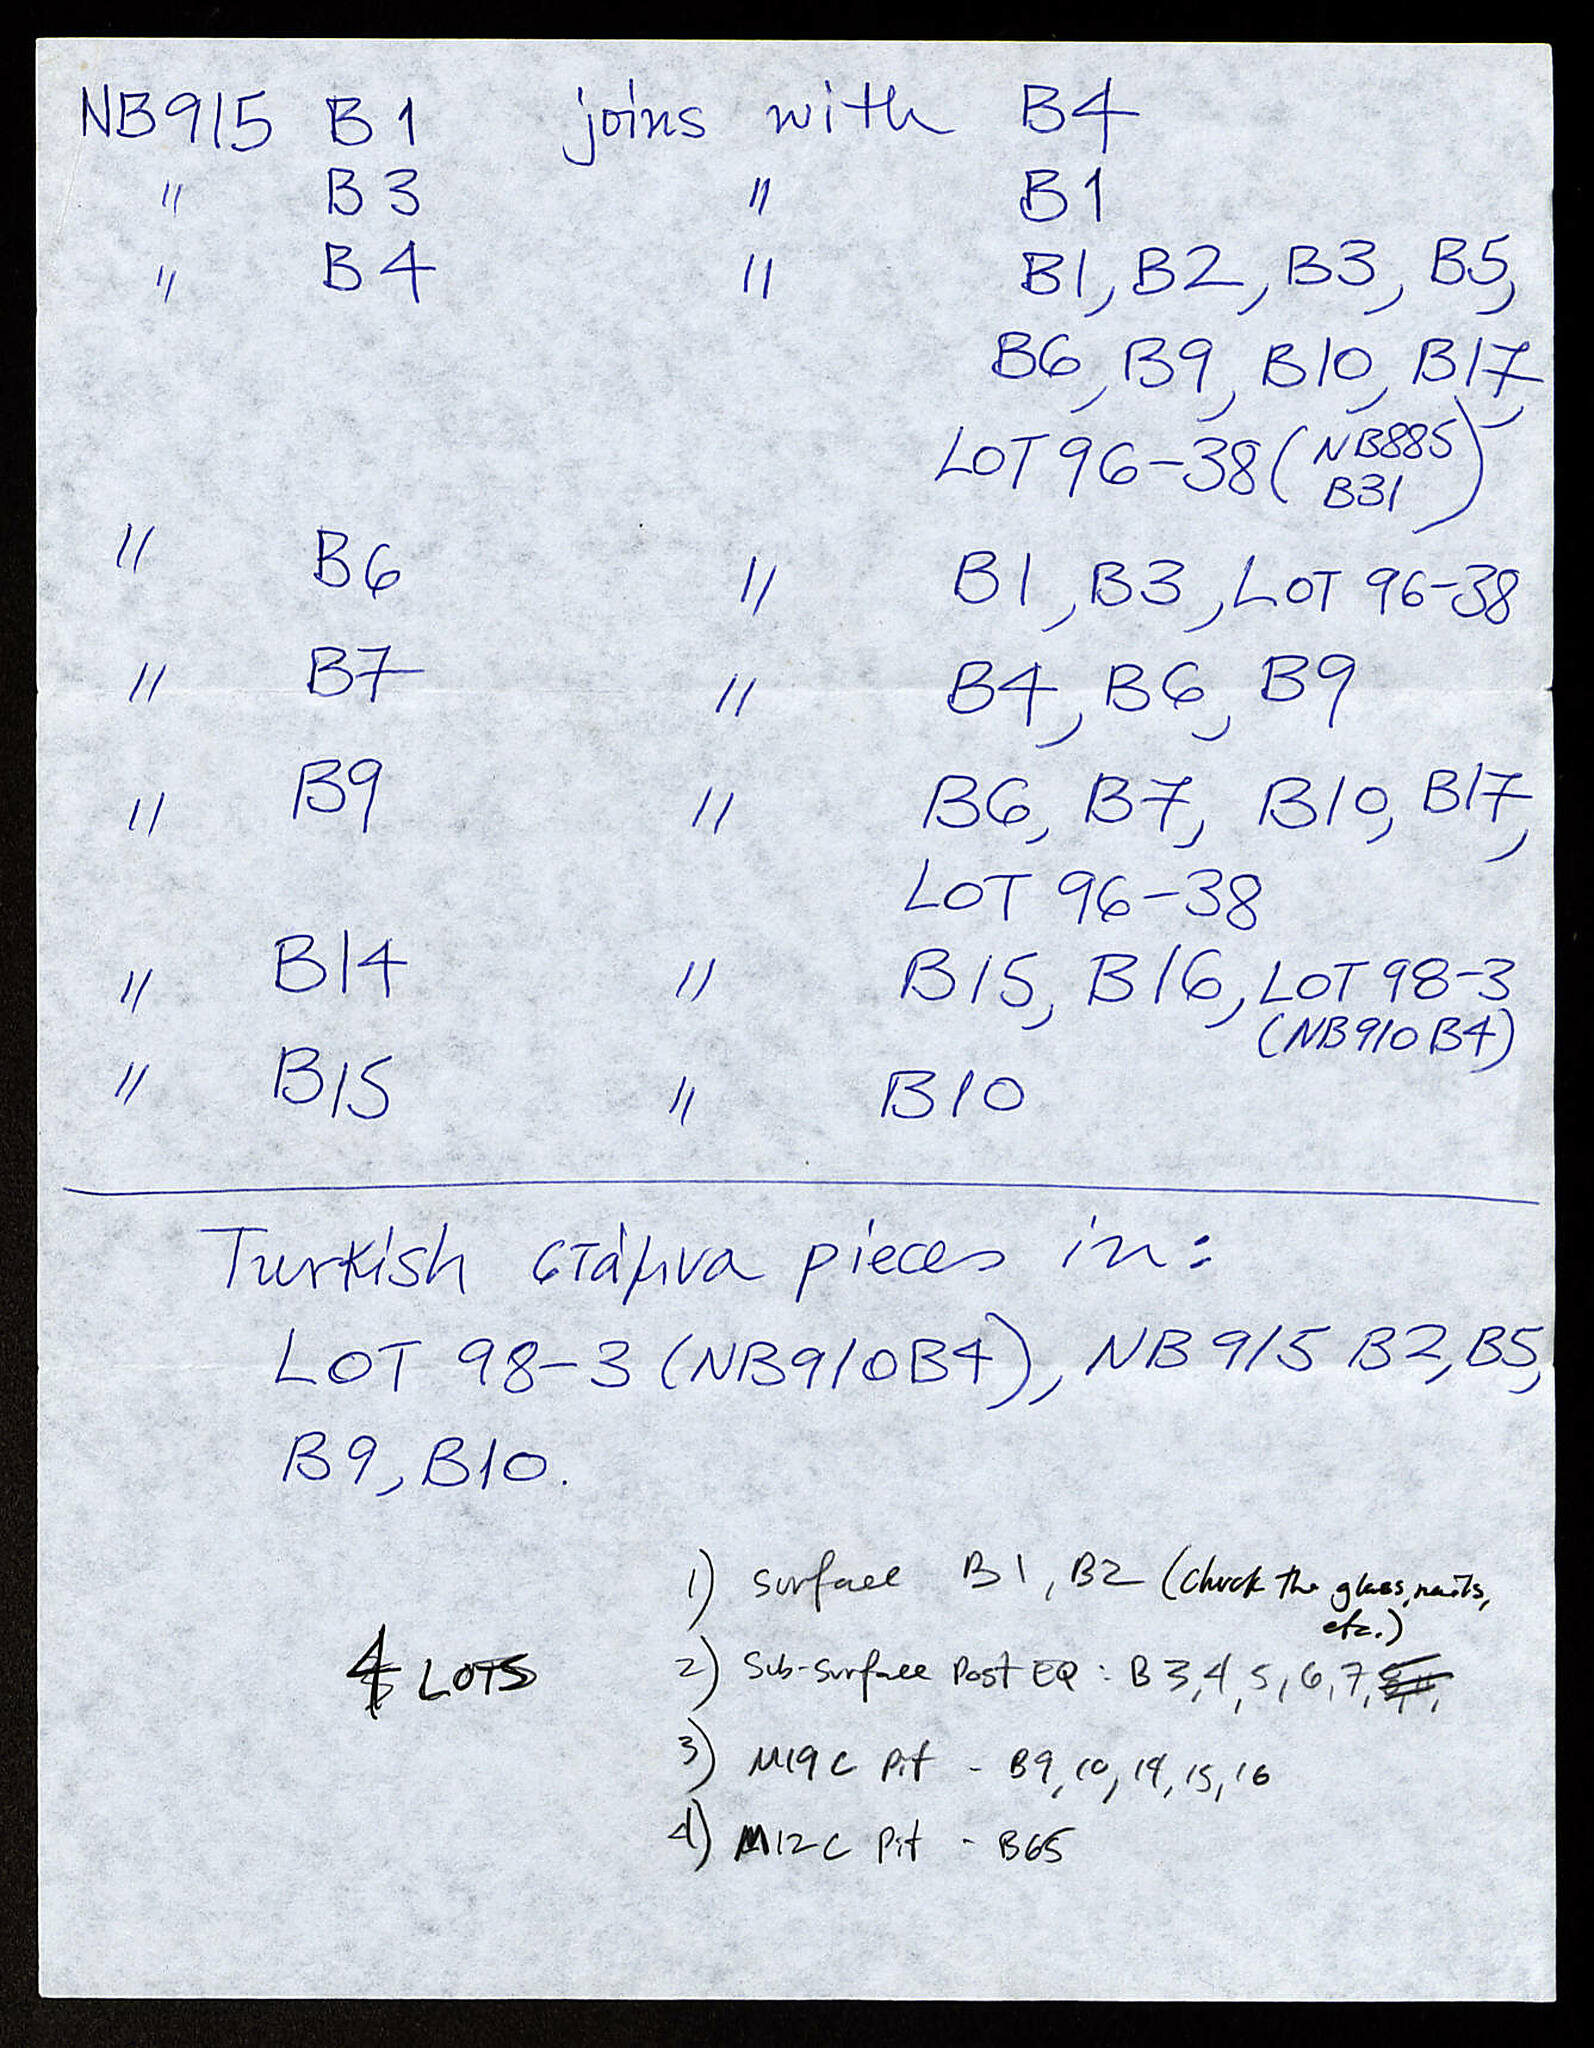 NB915 B1 joins with B4
" B3 " B1
" B4 " B1, B2, B3, B5,
B6, B9, B10, B17,
LOT 96-38 (NB885
B31)
" B6 " B1, B3, LOT 96-38
" B7 " B4, B6, B9
" B9 " B6, B7, B10, B17,
LOT 96-38
" B14 " B15, B16, LOT 98-3
(NB910 B4)
" B15 " B10
Turkish στάμνα pieces in:
LOT 98-3 (NB910B4), NB915 B2, B5,
B9, B10.
1) Surface B1, B2 (Check the glass, nails,
etc.)
4 LOTS
2) Sub-surface Post EQ: B3,4,5,6,7,
3) M19C Pit - B9,10,14,15,16
4) M12C Pit - B65